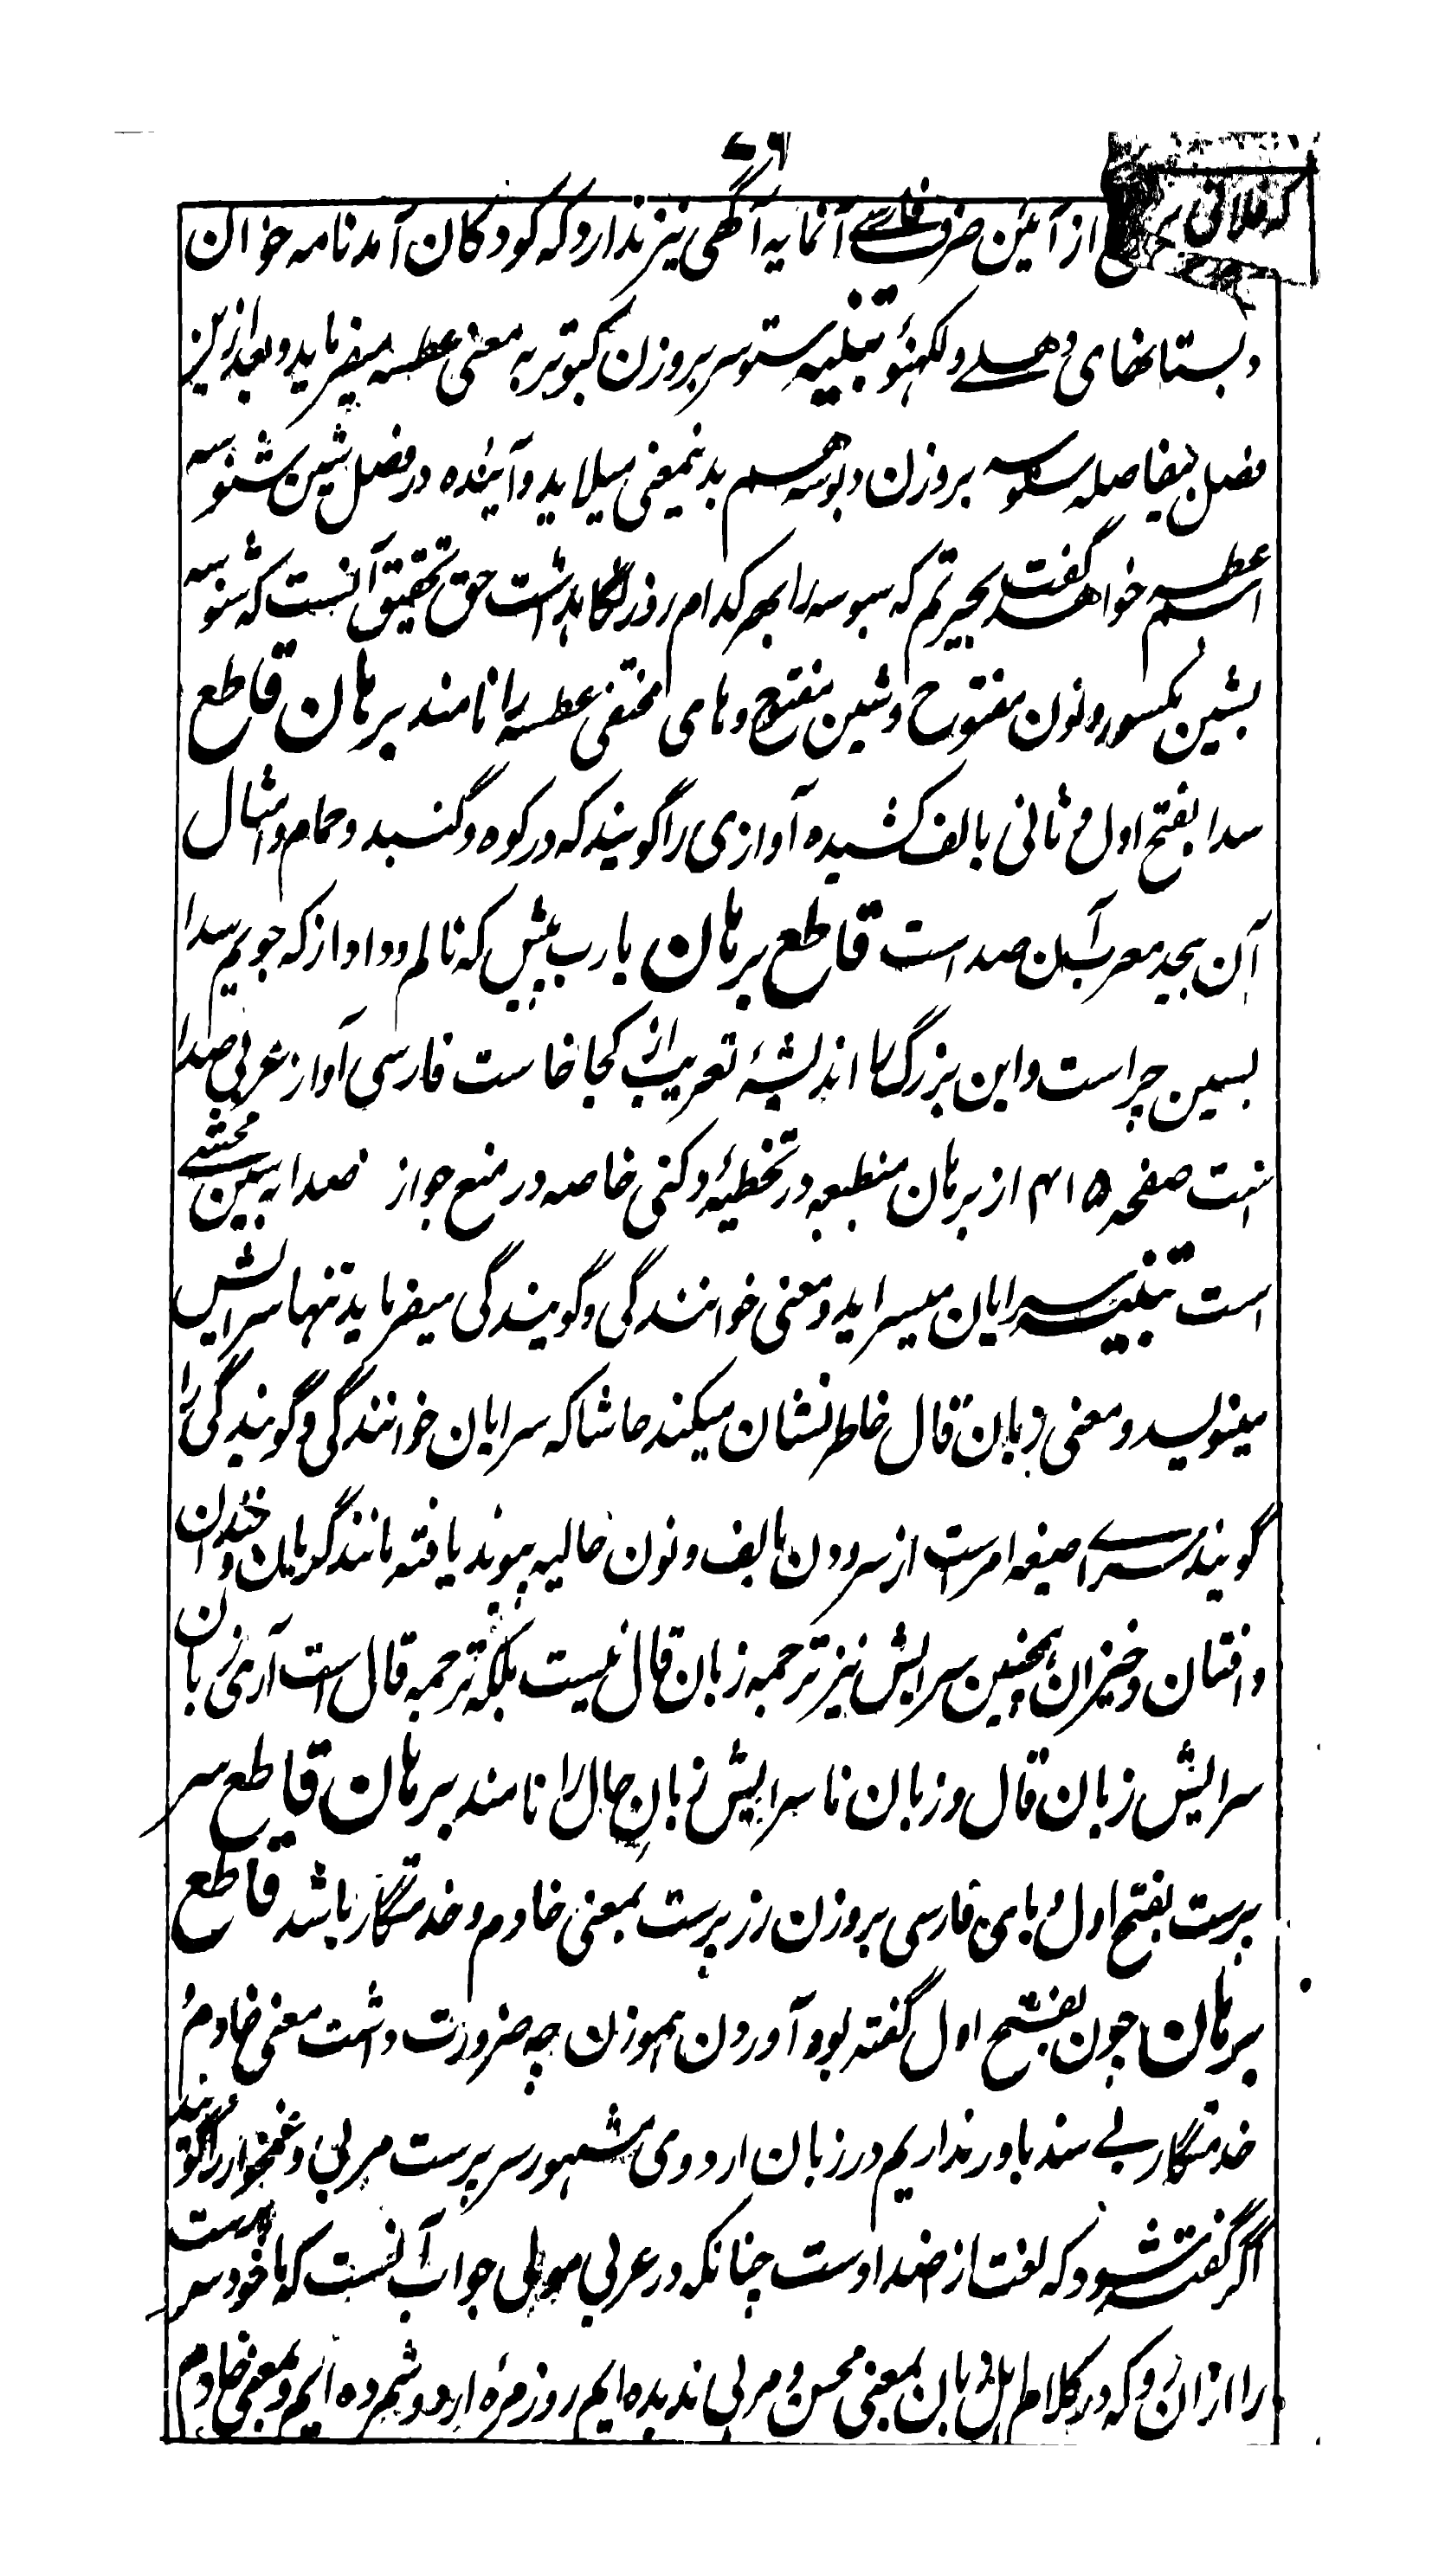 ۷۶
از آئین صرف فارسے آنمایه آگهی نیز ندارد که کودکان آمدنامه خوان
دبستانهای دهلے و لکهنؤ تنبیه ستوسر بروزن کبوتر به معنی عطسه میفرماید و بعد ازین
فصل بیفاصله سنوسه بروزن دبوسه هم بدینمعنی میلاید و آینده در فصل شین شنوسه
اسم عطسه خواهد گفت بحیرتم که سبوسه را بهر کدام روز نگاهداشت حق تحقیق آنست که شنوسه
بشین مکسور و نون مفتوح و شین مفتوح و های مختفی عطسه را نامند برهان قاطع
سدا بفتح اول و ثانی بالف کشیده آوازی را گویند که در کوه و گنبد و حمام و امثال
آن پیچد معرب آن صداست قاطع برهان یا رب پیش که نالم و داد از که جویم سدا
بسین چراست و این بزرگ را اندیشهٔ تعریب از کجا خاست فارسی آواز عربی صدا
ست صفحه ۴۱۵ از برهان منطبعه در تخطیهٔ دکنی خاصه در منع جواز صدا به سین محشے
است تنبیه سرایان میسراید و معنی خوانندگی و گویندگی میفرماید تنها سرایش
مینویسد و معنی زبان قال خاطر نشان میکند حاشا که سرایان خوانندگی و گویندگی را
گویند سراے صیغه امرست از سرودن بالف و نون حالیه پیوند یافته مانند گریان و خندان
و افتان و خیزان همچنین سرایش نیز ترجمه زبان قال نیست بلکه ترجمه قال است آری زبان با
سرایش زبان قال و زبان ناسرایش زبان حال را نامند برهان قاطع سر
پرست بفتح اول و بای فارسی بروزن زرپرست بمعنی خادم و خدمتگار باشد قاطع
برهان چون بفتح اول گفته بود آوردن هموزن چه ضرورت داشت معنی خادم و
خدمتگار بے سند باور نداریم در زبان اردوی مشهور سرپرست مربی و غمخوار را گویند
اگر گفته شود که لغت از اضداد ست چنانکه در عربی مولی جواب آنست که ما خود سرپرست
را ازان رو که در کلام اهل زبان بمعنی محسن و مربی ندیده ایم روزمرهٔ اردو شمرده ایم و بمعنی خادم